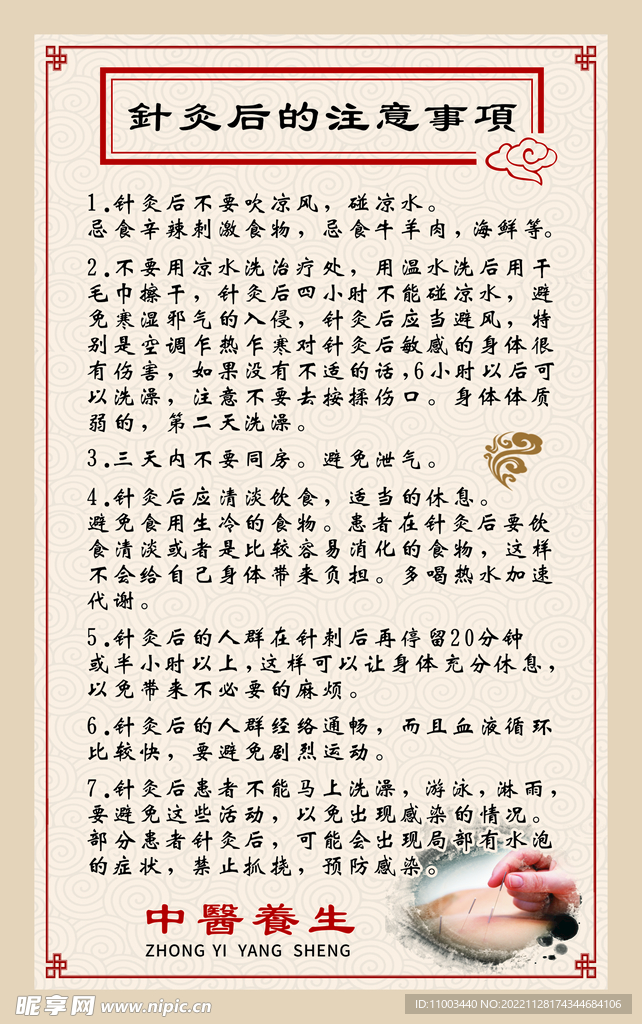 針灸后的注意事項
1.针灸后不要吹凉风，碰凉水。
忌食辛辣刺激食物，忌食牛羊肉，海鲜等。
2.不要用凉水洗治疗处，用温水洗后用干
毛巾擦干，针灸后四小时不能碰凉水，避
免寒湿邪气的入侵，针灸后应当避风，特
别是空调乍热乍寒对针灸后敏感的身体很
有伤害，如果没有不适的话，6小时以后可
以洗澡，注意不要去按揉伤口。身体体质
弱的，第二天洗澡。
3.三天内不要同房。避免泄气。
4.针灸后应清淡饮食，适当的休息。
避免食用生冷的食物。患者在针灸后要饮
食清淡或者是比较容易消化的食物，这样
不会给自己身体带来负担。多喝热水加速
代谢。
5.针灸后的人群在针刺后再停留20分钟
或半小时以上，这样可以让身体充分休息，
以免带来不必要的麻烦。
6.针灸后的人群经络通畅，而且血液循环
比较快，要避免剧烈运动。
7.针灸后患者不能马上洗澡，游泳，淋雨，
要避免这些活动，以免出现感染的情况。
部分患者针灸后，可能会出现局部有水泡
的症状，禁止抓挠，预防感染。
中醫養生
ZHONG YI YANG SHENG
昵享网 www.nipic.cn
ID:11003440 NO:20221128174344684106